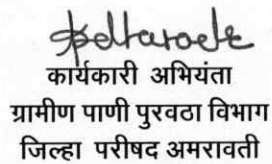 कार्यकारी अभियंता
ग्रामीण पाणी पुरवठा विभाग
जिल्हा परीषद अमरावती